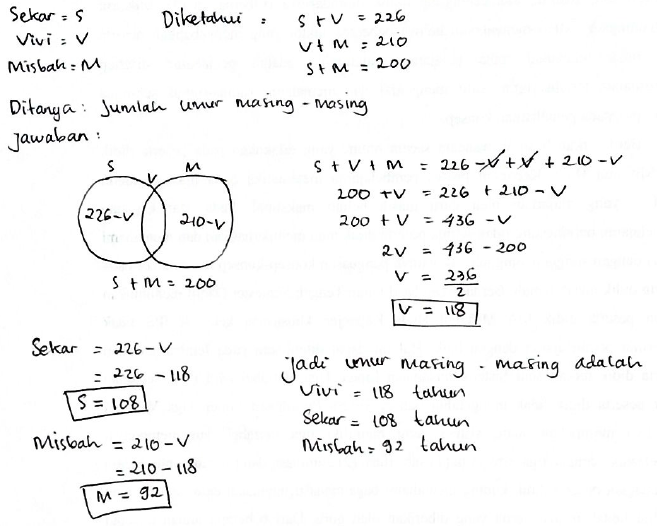 Sekar = S
Vivi = V
Misbah = M
Diketahui : S + V = 226
V + M = 210
S + M = 200
Ditanya : Jumlah umur masing - masing
Jawaban :
S V M
226-V 210-V
S + M = 200
S + V + M = 226 - V + V + 210 - V
200 + V = 226 + 210 - V
200 + V = 436 - V
2V = 436 - 200
V = 236/2
V = 118
Sekar = 226 - V
= 226 - 118
S = 108
Misbah = 210 - V
= 210 - 118
M = 92
Jadi umur masing - masing adalah
Vivi = 118 tahun
Sekar = 108 tahun
Misbah = 92 tahun